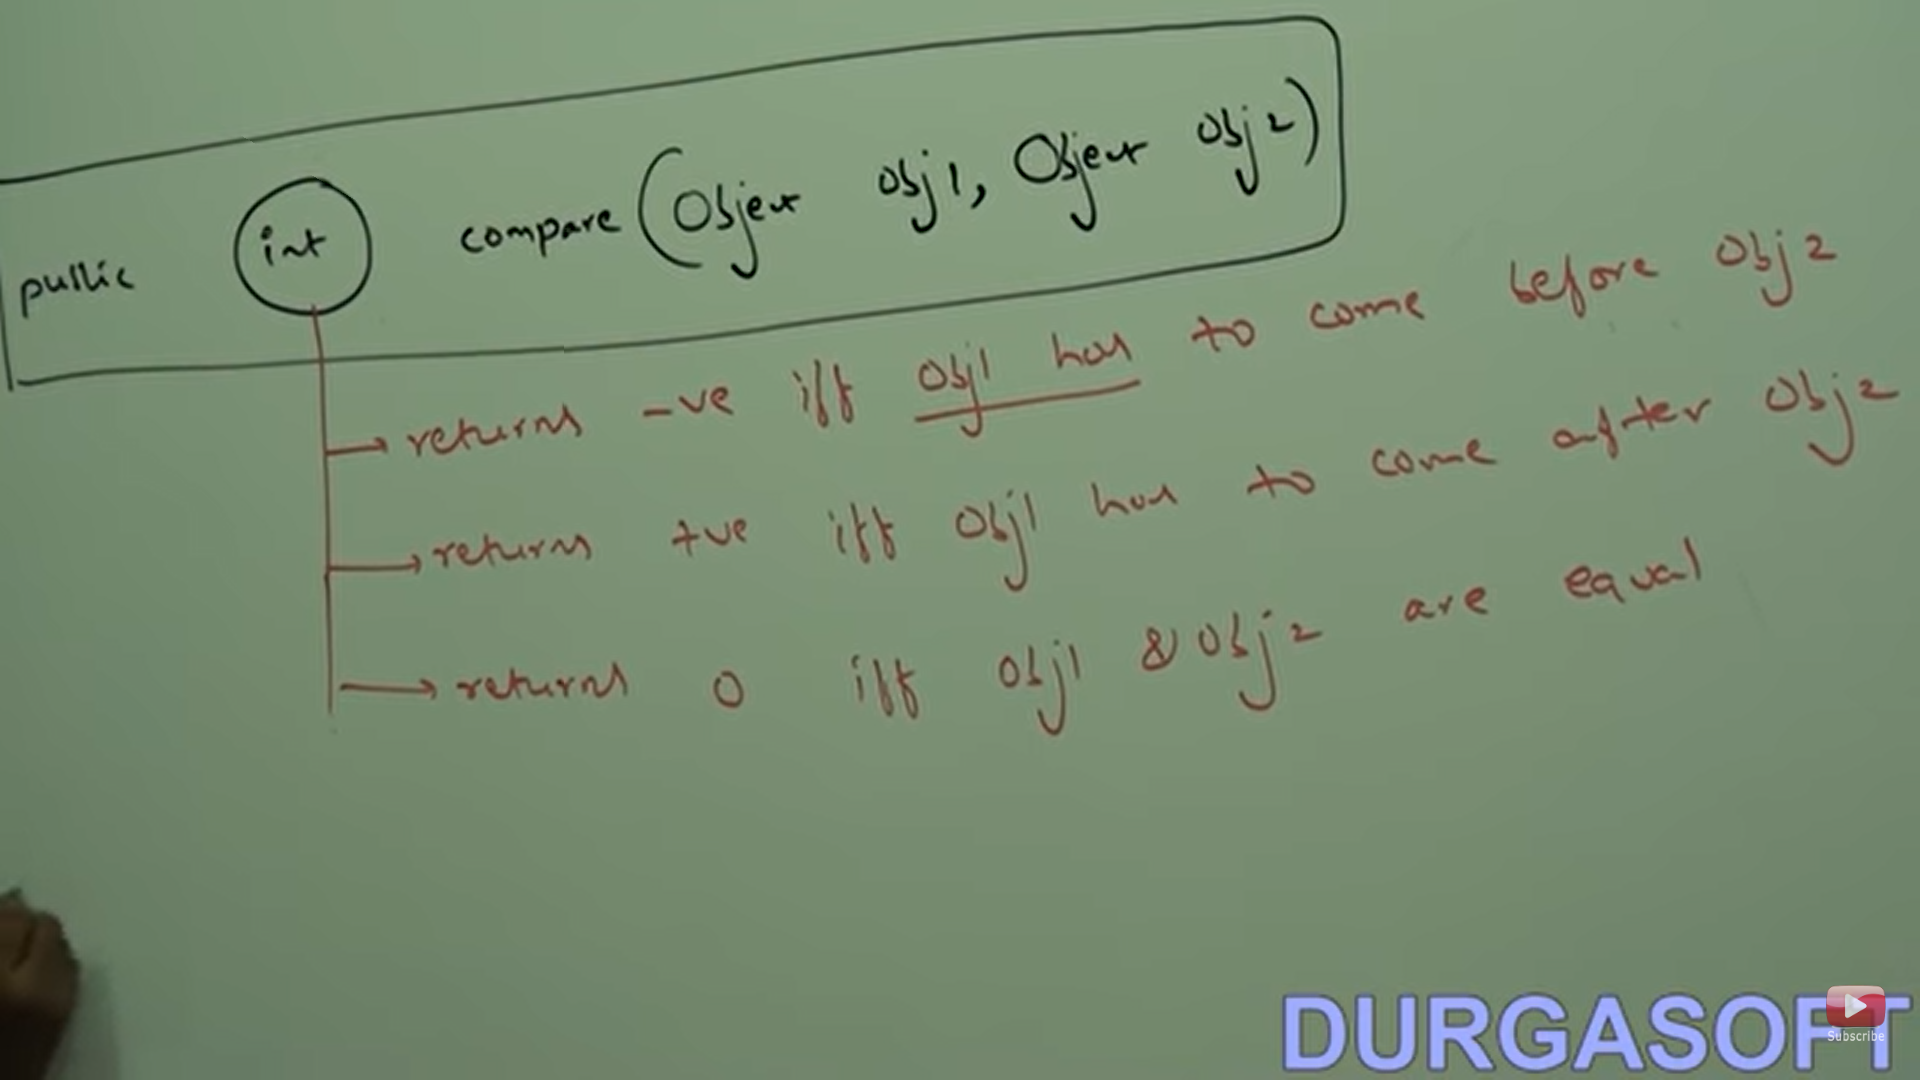 public int compare(Object obj1, Object obj2)
returns -ve iff obj1 has to come before obj2
returns +ve iff obj1 has to come after obj2
returns 0 iff obj1 & obj2 are equal
DURGASOFT
Subscribe